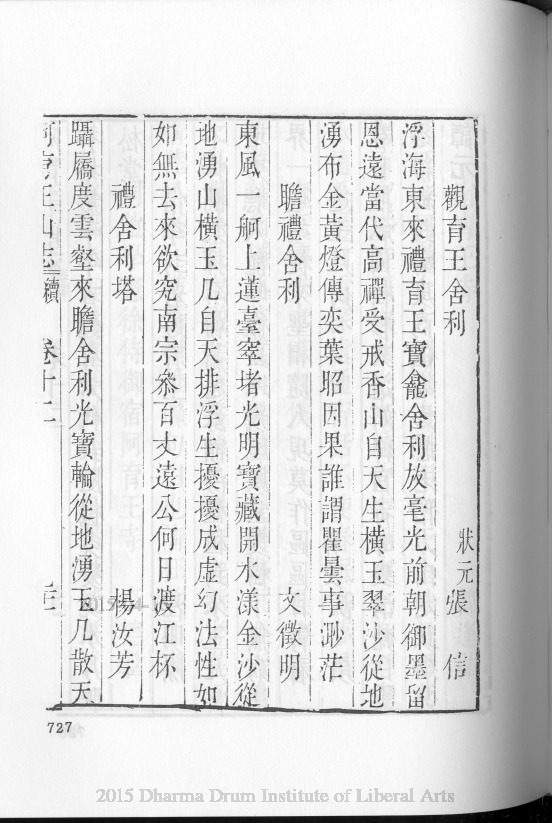 觀育王舍利 狀元張 信
浮海東來禮育王寶龕舍利放毫光前朝御墨留
恩遠當代高禪受戒香山自天生橫玉翠沙從地
湧布金黃燈傳奕葉昭因果誰謂瞿曇事渺茫
瞻禮舍利 文徵明
東風一舸上蓮臺窣堵光明寶藏開水漾金沙從
地湧山橫玉几自天排浮生擾擾成虛幻法性如
如無去來欲究南宗叅百丈遠公何日渡江杯
禮舍利塔 楊汝芳
躡屩度雲壑來瞻舍利光寶輪從地湧玉几散天
阿育王山志 續 卷十二
727
2015 Dharma Drum Institute of Liberal Arts